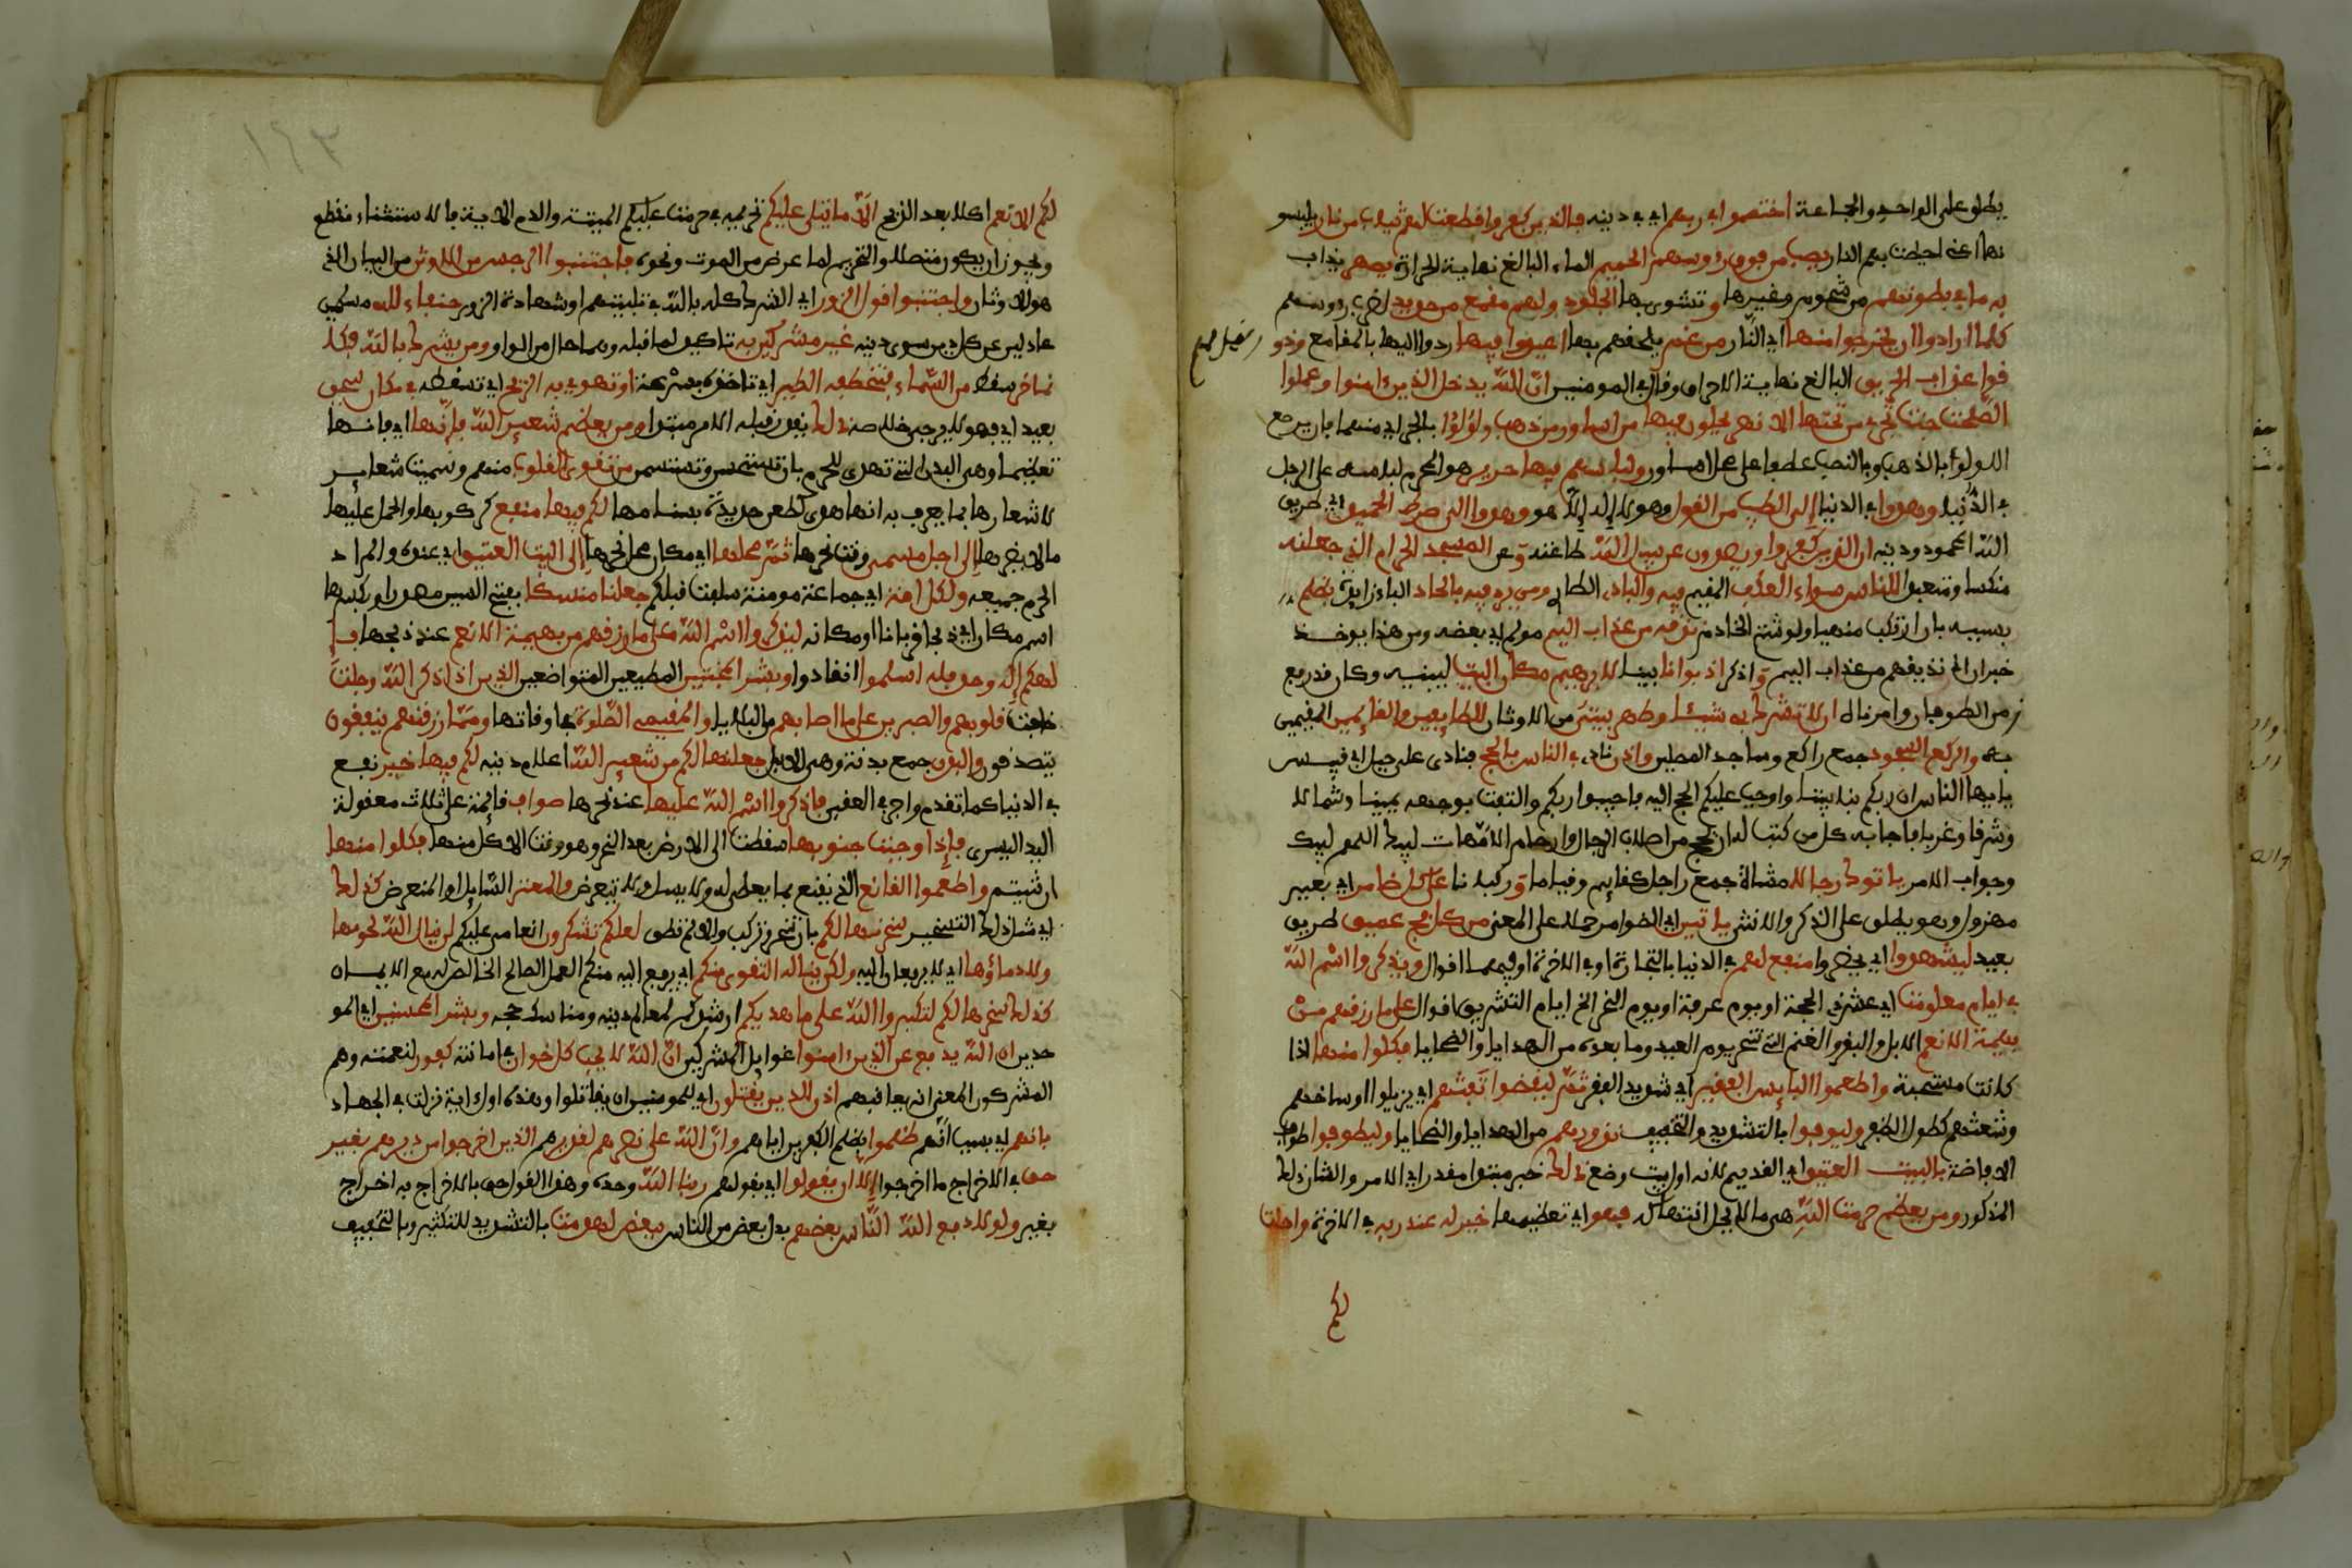 يطلق على الواحد والجماعة اختصموا في ربهم اي في دينه فالذين كفروا قطعت لهم ثياب من نار يلبسو
نها اعني احيطت بهم النار يصب من فوق رءوسهم الحميم الماء البالغ نهاية الحرارة يصهر يذاب
به ما في بطونهم من شحوم وغيرها و تشوى بها الجلود ولهم مقمع من حديد لضرب رءوسهم
كلما ارادوا ان يخرجوا منها اي النار من غم يلحقهم بها اعيدوا فيها ردوا اليها بالمقامع وذو
قوا عذاب الحريق البالغ نهاية الاحراق وقال في المومنين ان الله يدخل الذين ءامنوا وعملوا
الصلحت جنت تجري من تحتها الانهر يحلون فيها من اساور من ذهب ولؤلؤا بالجر اي منهما بان يرصع
اللولؤ بالذهب وبالنصب عطفا على محل اساور ولباسهم فيها حرير هو المحرم لبسه على الرجل
في الدنيا وهدوا في الدنيا إلى الطيب من القول وهو لا إله إلا الله هو وهدوا إلى صرط الحميد اي طريق
الله المحمود ودينه ان الذين كفروا ويصدون عن سبيل الله طاعته و عن المسجد الحرام الذي جعلنه
منسكا ومتعبدا للناس سواء العكف المقيم فيه والباد الطاري ومن يرد فيه بالحاد الباء زايدة بظلم
بسببه بان ارتكب منهيا ولو شتم الخادم نذقه من عذاب اليم مولم اي بعضه ومن هذا يوخذ
خبر ان اي نذيقهم من عذاب اليم و اذكر اذ بوانا بينا لابرهيم مكان البيت ليبنيه وكان قد رفع
زمن الطوفان وامرناه ان لا تشرك به شيئا وطهر بيتي من الاوثان للطايفين والقايمين المقيمين
به والركع السجود جمع راكع وساجد المصلين واذن ناد في الناس بالحج فنادى على جبل ابي قبيس
يايها الناس ان ربكم بنا بيتا واوجب عليكم الحج اليه فاجيبوا ربكم والتفت بوجهه يمينا وشمالا
وشرقا وغربا فاجابه كل من كتب له ان يحج من اصلاب الرجال وارحام الامهات لبيك اللهم لبيك
وجواب الامر ياتوك رجالا مشاة جمع راجل كقايم وقيام و ركبانا على كل ضامر اي بعير
مهزول وهو يطلق على الذكر والانثى ياتين اي الضوامر حملا على المعنى من كل فج عميق طريق
بعيد ليشهدوا اي يحضروا منفع لهم في الدنيا بالتجارة او في الاخرة او فيهما اقوال ويذكروا اسم الله
في ايام معلومت اي عشر ذي الحجة او يوم عرفة او يوم النحر الى اخر ايام التشريق اقوال على ما رزقهم من
بهيمة الانعم الابل والبقر والغنم التي تنحر يوم العيد وما بعده من الهدايا والضحايا فكلوا منها اذا
كانت مستحبة واطعموا البايس الفقير اي شديد الفقر ثم ليقضوا تفثهم اي يزيلوا اوساخهم
وشعثهم كطول الظفر وليوفوا بالتشديد والتخفيف نذورهم من الهدايا والضحايا وليطوفوا طواف
الافاضة بالبيت العتيق اي القديم لانه اول بيت وضع ذلك خبر مبتدا مقدر اي الامر والشان ذلك
المذكور ومن يعظم حرمت الله هي ما لا يحل انتهاكه فهو اي تعظيمها خير له عند ربه في الاخرة واحلت
لكم
لكم الانعم اكلا بعد الذبح الا ما يتلى عليكم تحريمه في حرمت عليكم الميتة والدم الاية فالاستثناء منقطع
ويجوز ان يكون متصلا والتحريم لما عرض من الموت ونحوه فاجتنبوا الرجس من الاوثن من للبيان الذي
هو الاوثان واجتنبوا قول الزور اي الشرك كله بالله في تلبيتهم او شهادة الزور حنفاء لله مسلمين
عادلين عن كل دين سوى دينه غير مشركين به تاكيد لما قبله وهما حال من الواو ومن يشرك بالله فكا
نما خر سقط من السماء فتخطفه الطير اي تاخذه بسرعة او تهوي به الريح اي تسقطه في مكان سحيق
بعيد اي فهو لا يرجى خلاصه ذلك يقدر قبله الامر مبتدا ومن يعظم شعير الله فإنها اي فانها
تعظيمها وهي البدن التي تهدى للحرم بان تستحسن وتستسمن من تقوى القلوب منهم وسميت شعاير
لاشعارها بما يعرف به انها هدي كطعن حديدة بسنامها لكم فيها منفع كركوبها والحمل عليها
ما لا يضرها إلى اجل مسمى وقت نحرها ثم محلها اي مكان حل نحرها إلى البيت العتيق اي عنده والمراد
الحرم جميعه ولكل امة اي جماعة مومنة سلفت قبلكم جعلنا منسكا بفتح السين مصدر او بكسرها
اسم مكان اي ذبحا قربانا او مكانه ليذكروا اسم الله على ما رزقهم من بهيمة الانعم عند ذبحها فا
لهكم إله وحد فله اسلموا انقادوا وبشر المخبتين المطيعين المتواضعين الذين اذا ذكر الله وجلت
خافت قلوبهم والصبرين على ما اصابهم من البلايا والمقيمي الصلوة في اوقاتها ومما رزقنهم ينفقون
يتصدقون والبدن جمع بدنة وهي الابل جعلنها لكم من شعير الله اعلام دينه لكم فيها خير نفع
في الدنيا كما تقدم واجر في العقبى فاذكروا اسم الله عليها عند نحرها صواف قايمة على ثلاث معقولة
اليد اليسرى فإذا وجبت جنوبها سقطت الى الارض بعد النحر وهو وقت الاكل منها فكلوا منها
ان شيتم واطعموا القانع الذي يقنع بما يعطى له ولا يسال ولا يتعرض والمعتر السايل او المتعرض كذلك
اي مثل ذلك التسخير سخرنها لكم بان تنحر وتركب والا لم تطق لعلكم تشكرون انعامي عليكم لن ينال الله لحومها
ولا دماؤها اي لا يرفعان اليه ولكن يناله التقوى منكم اي يرفع اليه منكم العمل الصالح الخالص له مع الايمان
كذلك سخرها لكم لتكبروا الله على ما هديكم ارشدكم لمعالم دينه ومناسك حجه وبشر المحسنين اي المو
حدين ان الله يدفع عن الذين ءامنوا غوايل المشركين ان الله لا يحب كل خوان في امانته كفور لنعمته وهم
المشركون المعنى انه يعاقبهم اذن للذين يقتلون اي للمومنين ان يقاتلوا وهذه اول اية نزلت في الجهاد
بانهم اي بسبب انهم ظلموا بظلم الكافرين اياهم وان الله على نصرهم لقدير هم الذين اخرجوا من ديرهم بغير
حق في الاخراج ما اخرجوا إلا ان يقولوا اي بقولهم ربنا الله وحده وهذا القول حق بالاخراج به اخراج
بغير ولولا دفع الله الناس بعضهم بدل بعض من الناس ببعض لهدمت بالتشديد للتكثير وبالتخفيف